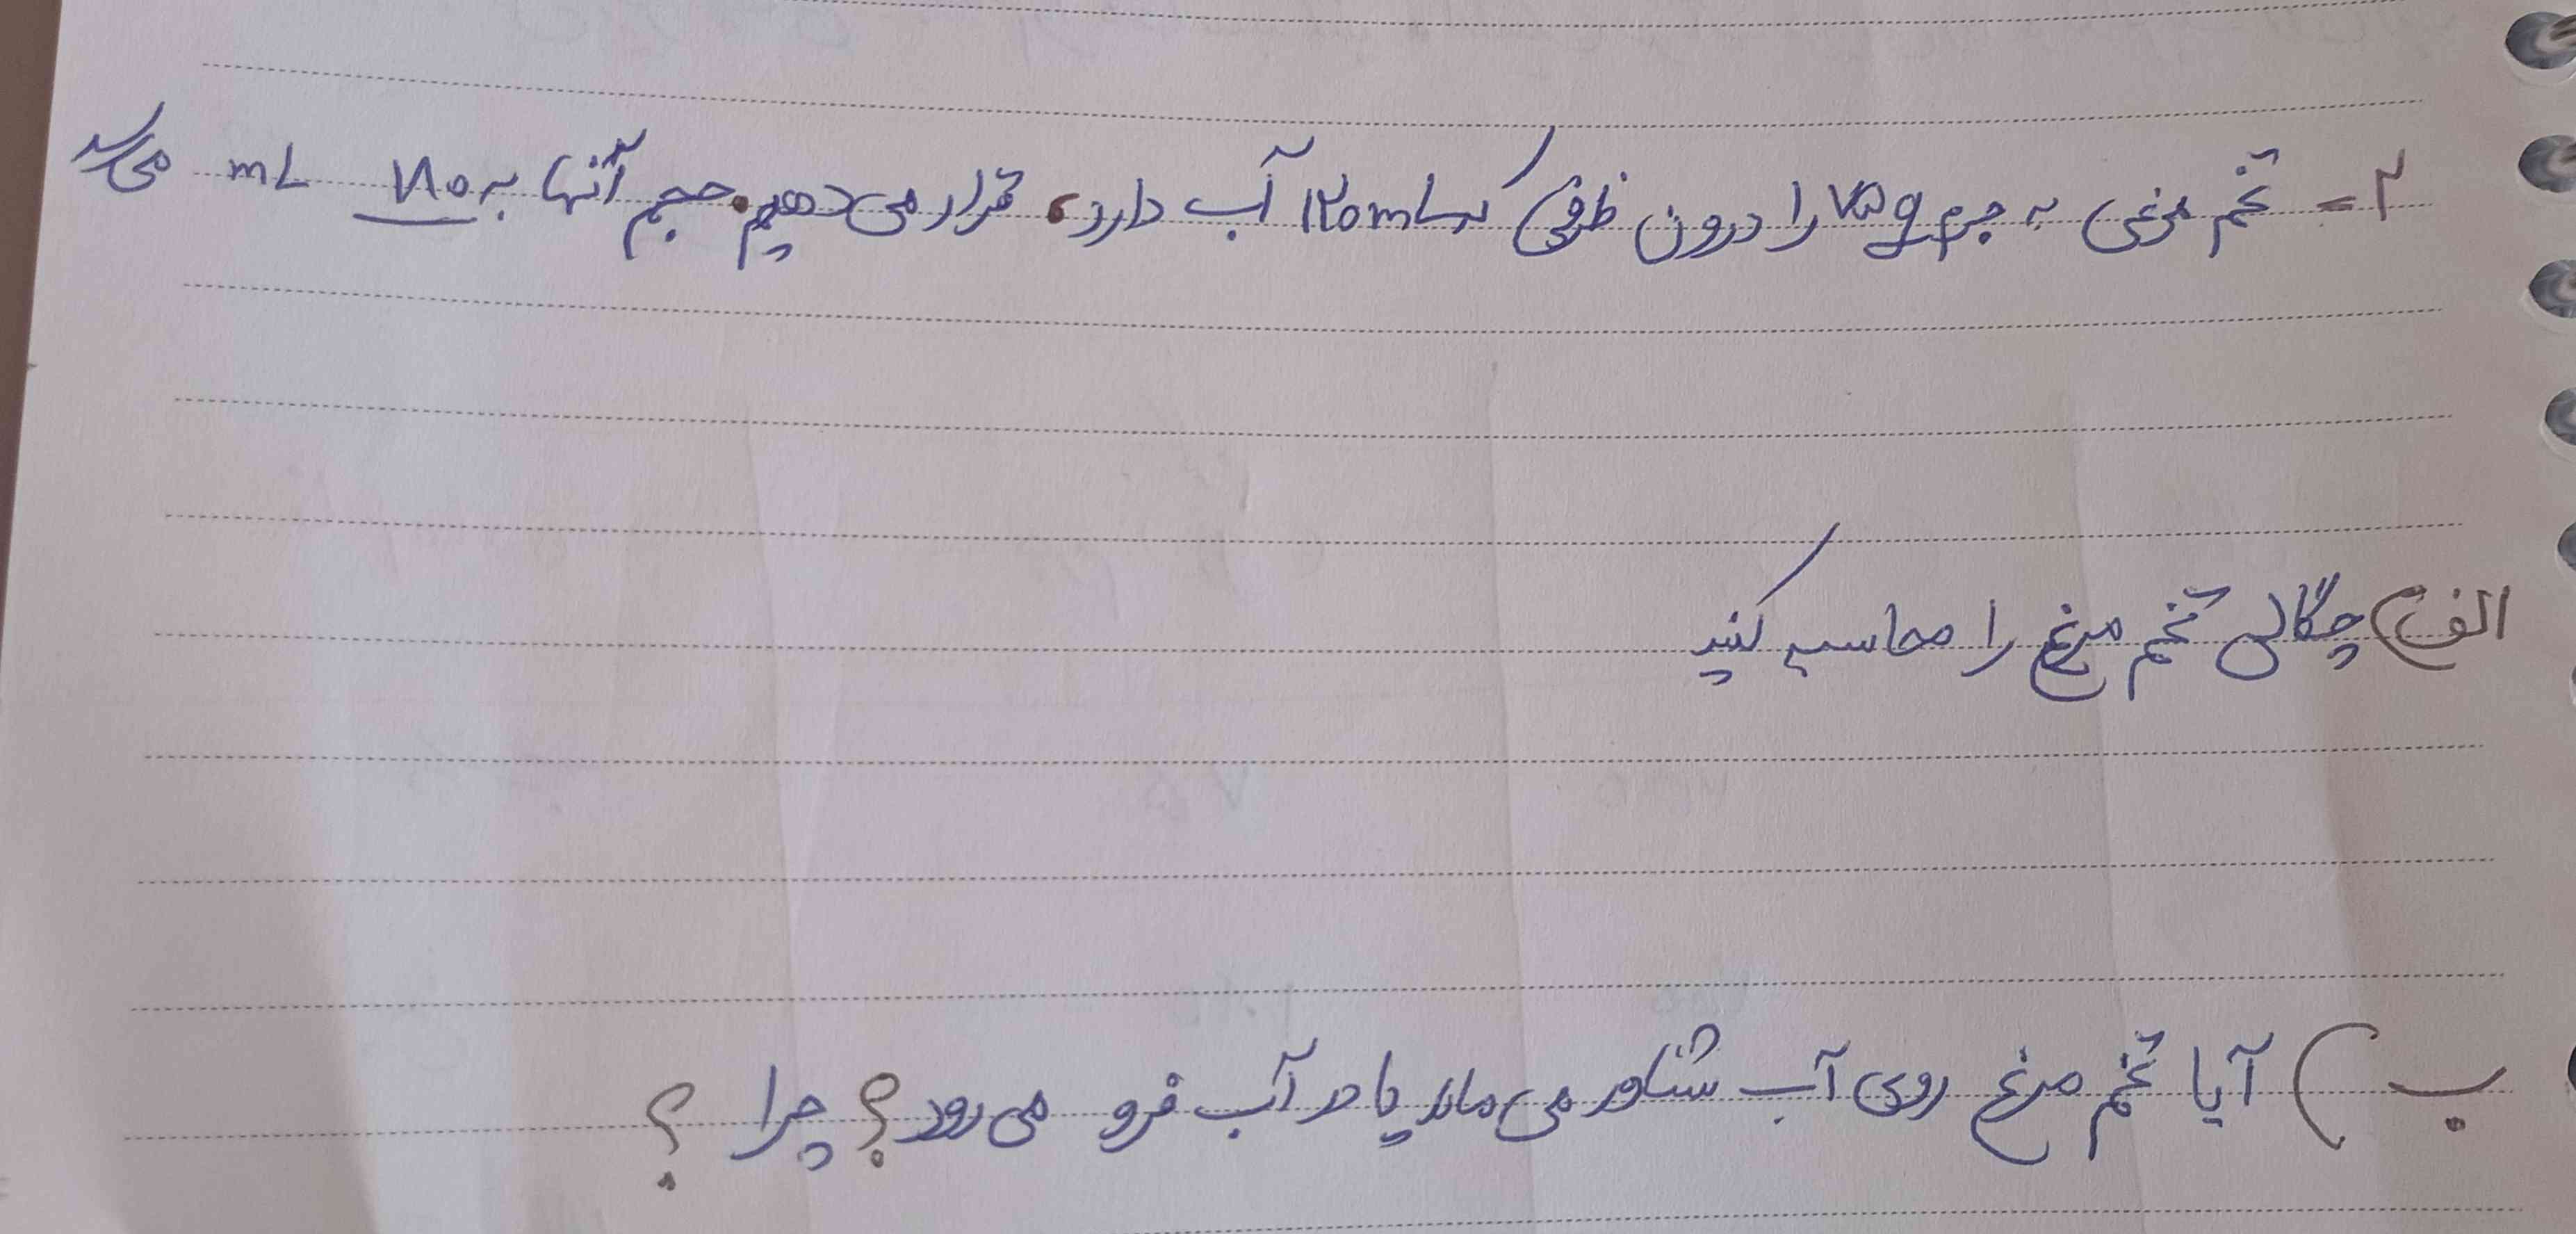 ۲= تخم مرغی به جرم ۷۵g را درون ظرفی که ۱۲۰mL آب دارد، قرار می‌دهیم. حجم آنها به ۱۸۰ mL می‌رسد
الف) چگالی تخم مرغ را محاسبه کنید
ب) آیا تخم مرغ روی آب شناور می‌ماند یا در آب فرو می‌رود؟ چرا ؟